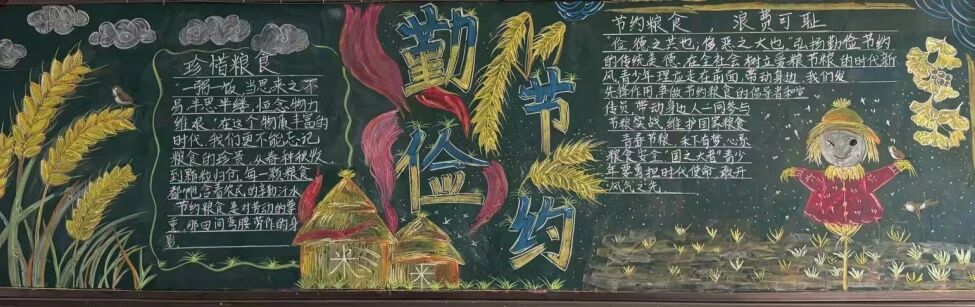 珍惜粮食
"一粥一饭,当思来之不
易,半丝半缕,恒念物力
维艰"在这个物质丰富的
时代,我们更不能忘记
粮食的珍贵,从春种秋收
到颗粒归仓,每一颗粮食
都饱含着农民的辛勤汗水
节约粮食是对劳动的尊
重,那田间弯腰劳作的身
影
勤俭
节约
米
米
节约粮食 浪费可耻
俭,德之共也,侈,恶之大也"弘扬勤俭节约
的传统美德,在全社会树立爱粮节粮的时代新
风青少年理应走在前面,带动身边,我们发
先锋作用,争做节约粮食的倡导者和宣
传员,带动身边人一同参与
节粮实战,维护国家粮食
青春节粮,禾下有梦,心系
粮食安全"国之大者"青少
年要勇担时代使命,敢开
风气之先